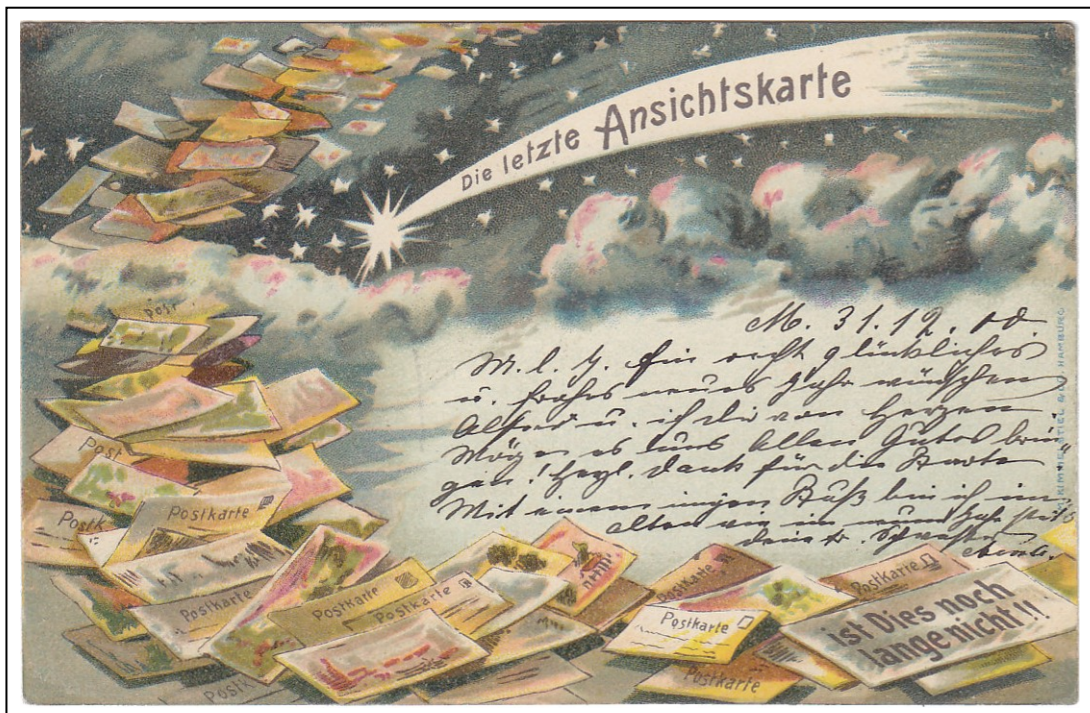 Die letzte Ansichtskarte
M. 31.12.00.
M. l. J. Ein recht glückliches
u. frohes neues Jahr wünschen
Alfred u. ich dir von Herzen.
Möge es uns Allen Gutes brin-
gen! Herzl. Dank für die Karte
Mit einem innigen Kuß bin ich im
alten wie im neuen Jahr stets
deine tr. Schwester
HAMBURG
post
Post
Postk
Postkarte
Postkarte
Postkarte
Postkarte
Postkarte
Postkarte
Postkarte
Postkarte
Postkarte
ist Dies noch
lange nicht!!